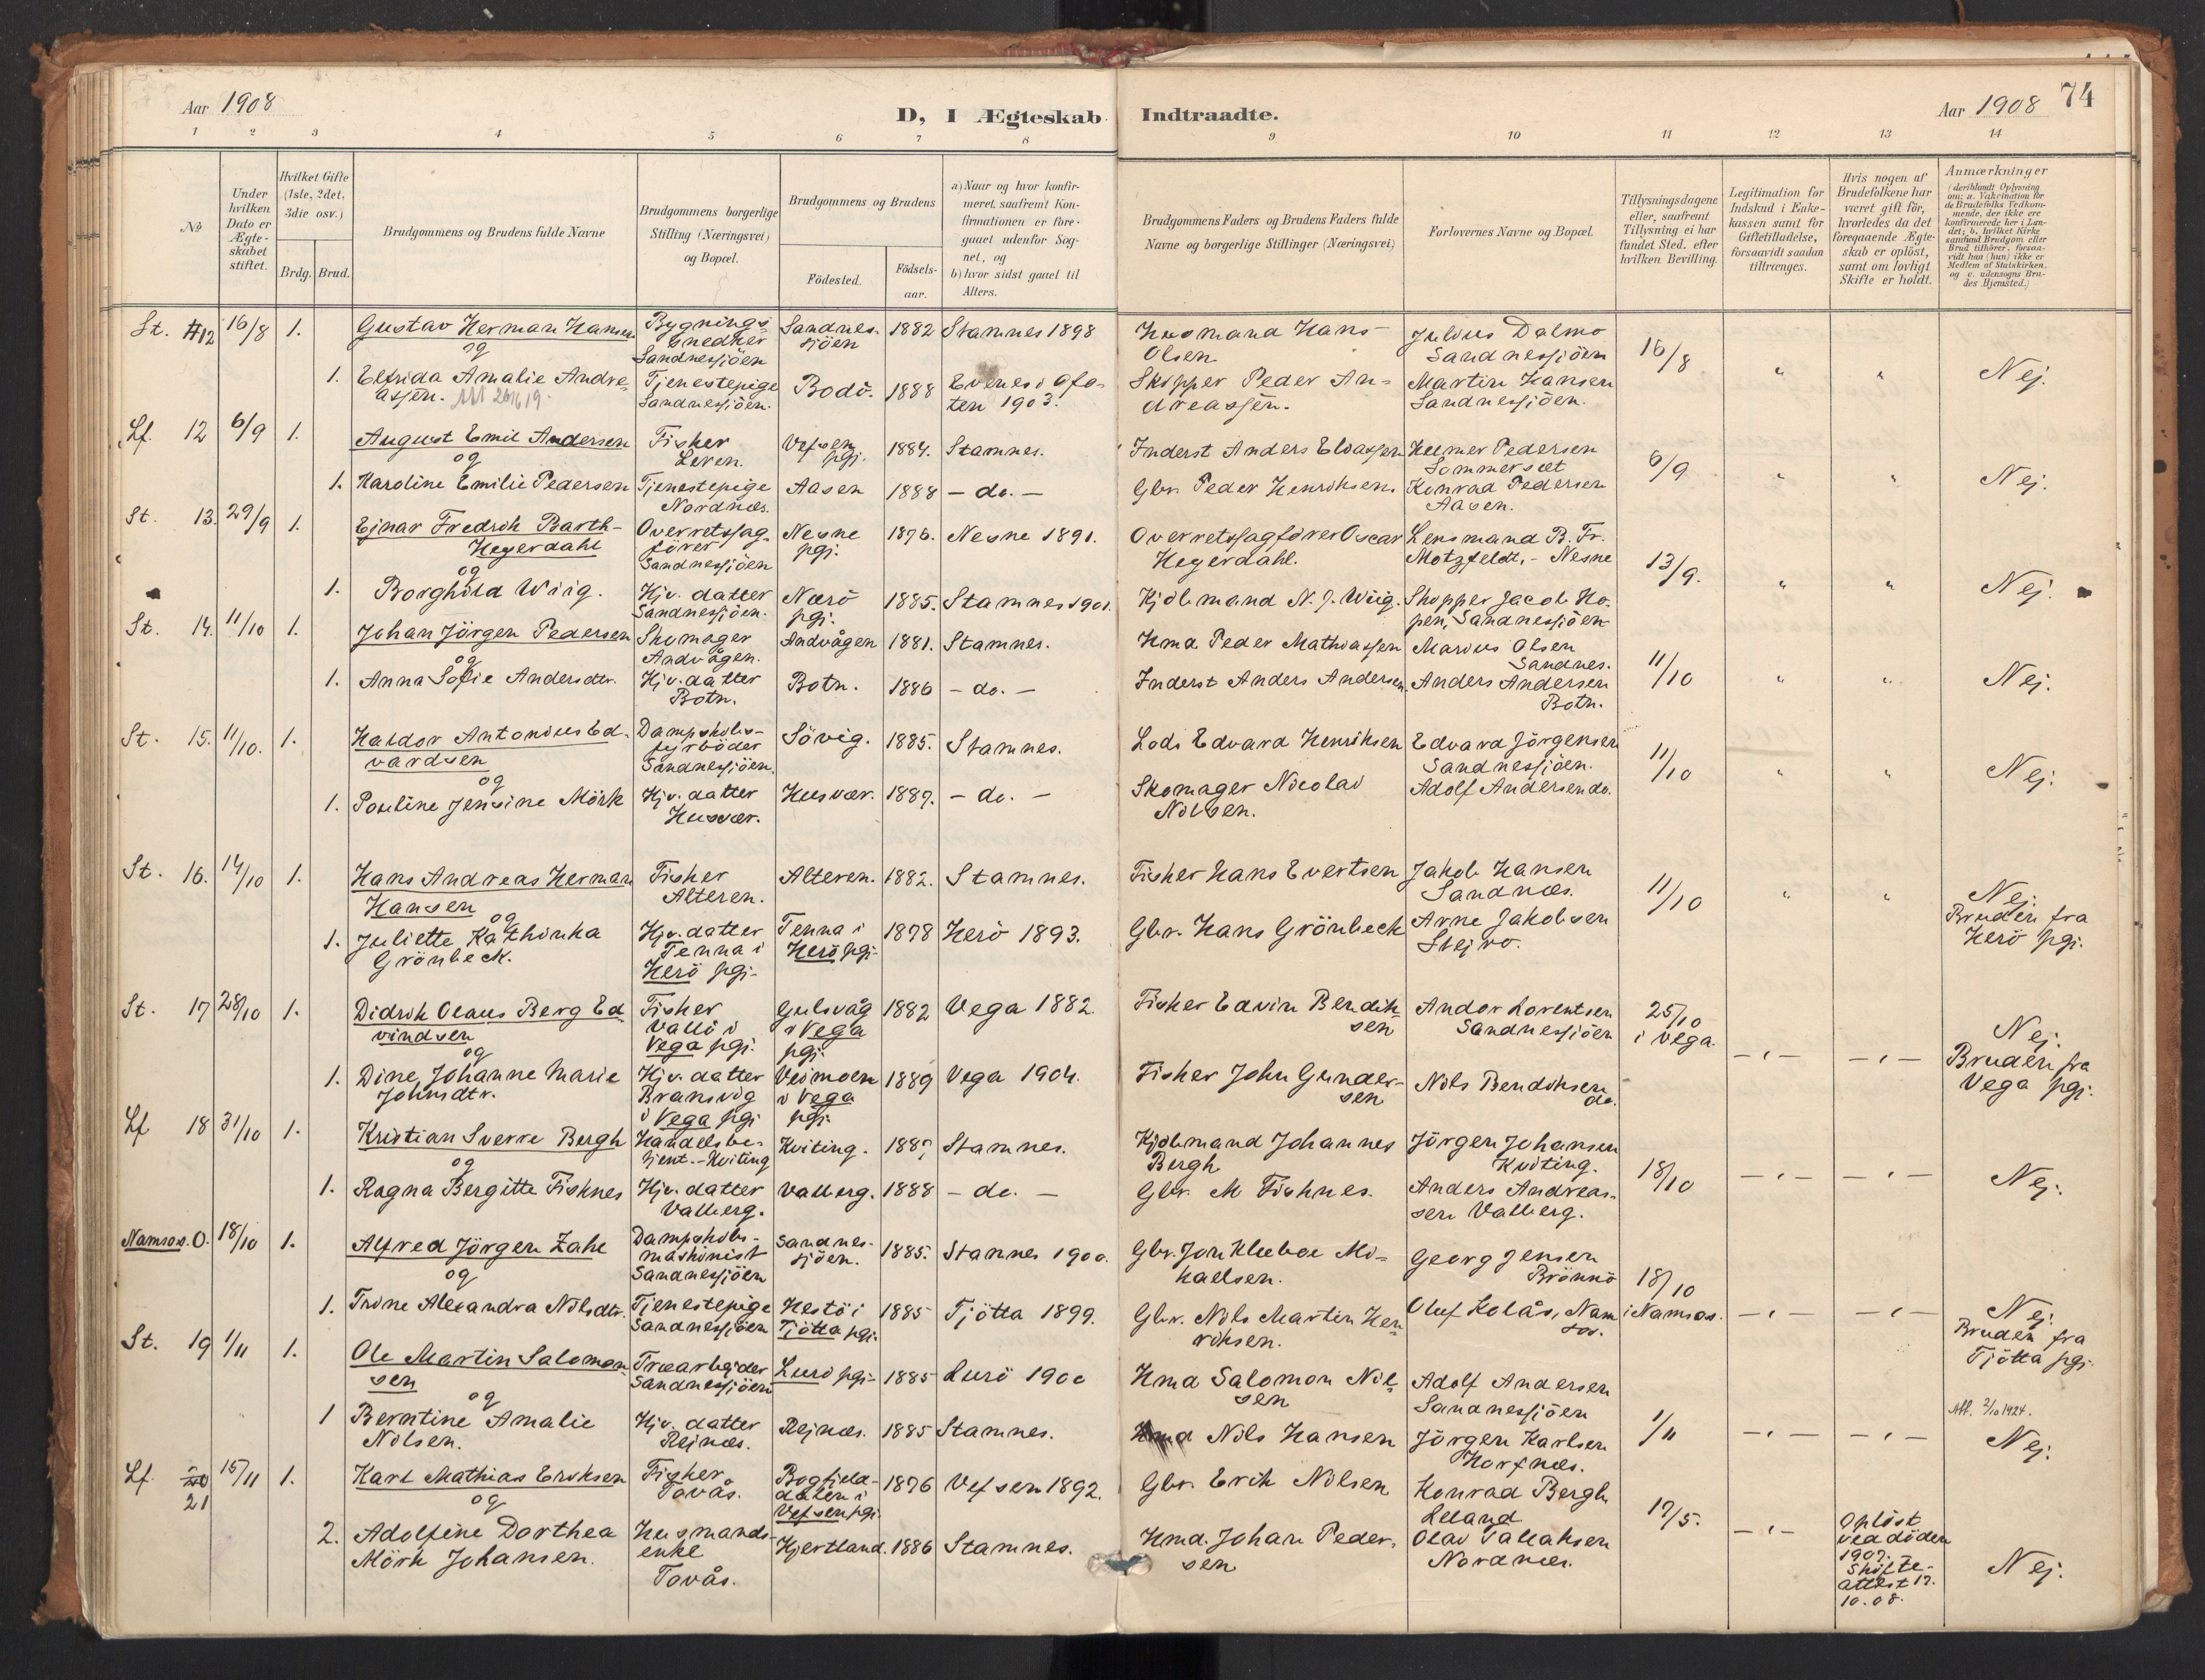 Aar 1908
D, I Ægteskab Indtraadte.
Aar 1908 74
1 2 3 4 5 6 7 8 9 10 11 12 13 14
No
Under hvilken Dato er Ægteskabet stiftet.
Hvilket Gifte (1ste, 2det, 3die osv.)
Brdg. Brud.
Brudgommens og Brudens fulde Navne
Brudgommens borgerlige Stilling (Næringsvei) og Bopæl.
Brudgommens og Brudens
Födested.
Födsels-aar.
a) Naar og hvor konfirmeret, saafremt Konfirmationen er foregaaet udenfor Sognet, og
b) hvor sidst gaaet til Alters.
Brudgommens Faders og Brudens Faders fulde Navne og borgerlige Stillinger (Næringsvei)
Forlovernes Navne og Bopæl.
Tillysningsdagene eller, saafremt Tillysning ei har fundet Sted, efter hvilken Bevilling.
Legitimation for Indskud i Enkekassen samt for Giftetilladelse, forsaavidt saadan tiltrænges.
Hvis nogen af Brudefolkene har været gift för, hvorledes da det foregaaende Ægteskab er oplöst, samt om lovligt Skifte er holdt.
Anmærkninger
(deriblandt Oplysning om: a. Vakcination for de Brudefolks Vedkommende, der ikke ere konfirmerede her i Landet; b. hvilket Kirkesamfund Brudgom eller Brud tilhörer, forsaavidt han (hun) ikke er Medlem af Statskirken, og c. udensogns Brudes Hjemsted.)
St. #12 16/8 1. Gustav Herman Hansen Bygningssnedker Sandnessjöen Sandnessjöen 1882 Stamnes 1898 Husmand Hans Olsen Julius Dalmo Sandnessjöen 16/8 " " Nej.
og
1. Elfrida Amalie Andreassen. Tjenestepige Sandnessjöen. Bodö. 1888 Evenes i Ofoten 1903. Skipper Peder Andreassen. Martin Hansen Sandnessjöen.
Lf. 12 6/9 1. August Emil Andersen Fisker Leren. Vefsen pgj. 1884. Stamnes. Inderst Anders Eliassen Helmer Pedersen Sommersæt 6/9 " " Nej.
og
1. Karoline Emilie Pedersen Tjenestepige Nordnæs. Aasen 1888 - do. - Gbr. Peder Henriksen. Konrad Pedersen Aasen.
St. 13. 29/9 1. Ejnar Fredrik Barth-Hegerdahl Overretssagförer Sandnessjöen Nesne pgj. 1876. Nesne 1891. Overretssagförer Oscar Hegerdahl. Lensmand B. Fr. Motzfeldt, - Nesne 13/9. " " Nej.
og
1. Borghild Wiig. Hjv. datter Sandnessjöen. Nærö pgj. 1885. Stamnes 1901. Kjöbmand N. J. Wiig. Skipper Jacob Hopen, Sandnessjöen
St. 14. 11/10 1. Johan Jörgen Pedersen Skomager Andvågen. Andvågen 1881. Stamnes. Hmd Peder Mathiassen Marius Olsen Sandnes. 11/10 " " Nej.
og
1. Anna Sofie Andersdtr. Hjv. datter Botn. Botn. 1886 - do. - Inderst Anders Andersen. Anders Andersen Botn.
St. 15. 11/10. 1. Haldor Antonius Edvardsen Dampskibsfyrböder Sandnessjöen. Sövig. 1885. Stamnes. Lods Edvard Henriksen Edvard Jörgensen Sandnessjöen. 11/10 " " Nej.
og
1. Pauline Jensine Mörk Hjv. datter Husvær. Husvær. 1889. - do. - Skomager Nicolai Nilsen. Adolf Andersen do.
St. 16. 14/10 1. Hans Andreas Herman Hansen Fisker Alteren. Alteren. 1882. Stamnes. Fisker Hans Evertsen Jakob Hansen Sandnæs. 11/10 " " Nej. Bruden fra Herö pgj.
og
1. Juliette Kathinka Grönbeck. Hjv. datter Tenna i Herö pgj. Tenna i Herö pgj. 1878 Herö 1893. Gbr. Hans Grönbeck Arne Jakobsen Stejro.
St. 17 28/10 1. Didrik Olaus Berg Edvindsen Fisker Vallö i Vega pgj. Gulsvåg i Vega pgj. 1882 Vega 1882. Fisker Edvin Bendiksen Andor Lorentsen Sandnessjöen 25/10 i Vega. - " - - " - Nej. Bruden fra Vega pgj.
og
1. Dine Johanne Marie Johnsdtr. Hjv. datter Bransvig i Vega pgj Veimoen i Vega pgj. 1889 Vega 1904. Fisker John Gundersen Nils Bendiksen do.
Lf 18 31/10 1. Kristian Sverre Bergh Handelsbetjent. - Kviting Kviting. 188 Stamnes. Kjöbmand Johannes Bergh Jörgen Johansen Kviting. 18/10 - " - - " - Nej.
og
1. Ragna Bergitte Fisknes Hjv. datter Valberg. Valberg. 1888 - do. - Gbr. M Fisknes. Anders Andreassen Valberg.
Namsos. O. 18/10 1. Alfred Jörgen Zahl Dampskibsmaskinist Sandnessjöen Sandnessjöen. 1885. Stamnes 1900. Gbr. Jon Kleboe Mikaelsen. Georg Jensen Brönnö 18/10 i Namsos. - " - - " - Nej. Bruden fra Tjötta pgj.
og
1. Trine Alexandra Nilsdtr. Tjenestepige Sandnessjöen Hestö i Tjötta pgj. 1885 Tjötta 1899. Gbr. Nils Martin Henriksen. Oluf Kolås, Namsos.
St. 19 1/11 1. Ole Martin Salomonsen Træarbejder Sandnessjöen Lurö pgj. 1885 Lurö 1900 Hmd Salomon Nilsen Adolf Andersen Sandnessjöen 1/11 - " - - " - Att. 2/10 1924. Nej.
og
1 Berntine Amalie Nilsen. Hjv. datter Rejnæs. Rejnæs. 1885 Stamnes. Hmd Nils Hansen Jörgen Karlsen Horfnæs.
Lf. 20 21 15/11 1. Karl Mathias Eriksen Fisker Tovås. Bogfjelddalen i Vefsen pgj. 1876 Vefsen 1892. Gbr. Erik Nilsen Konrad Bergh Leland 17/5. - " - Oplöst ved döden 1907. Skifteattest 17.10.08. Nej.
og
2. Adolfine Dorthea Mörk Johansen. Husmandsenke Tovås. Hjertland. 1886 Stamnes. Hmd. Johan Pedersen Olav Tallaksen Nordnæs.